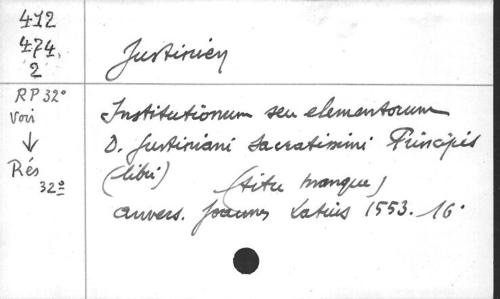 412
474,
2
Justinien
RP 32°
voir
↓
Rés
32°
Institutionum seu elementorum
D. Justiniani Sacratissimi Principis
(libri) (titre manque)
Anvers. Joannes Latius 1553. 16°